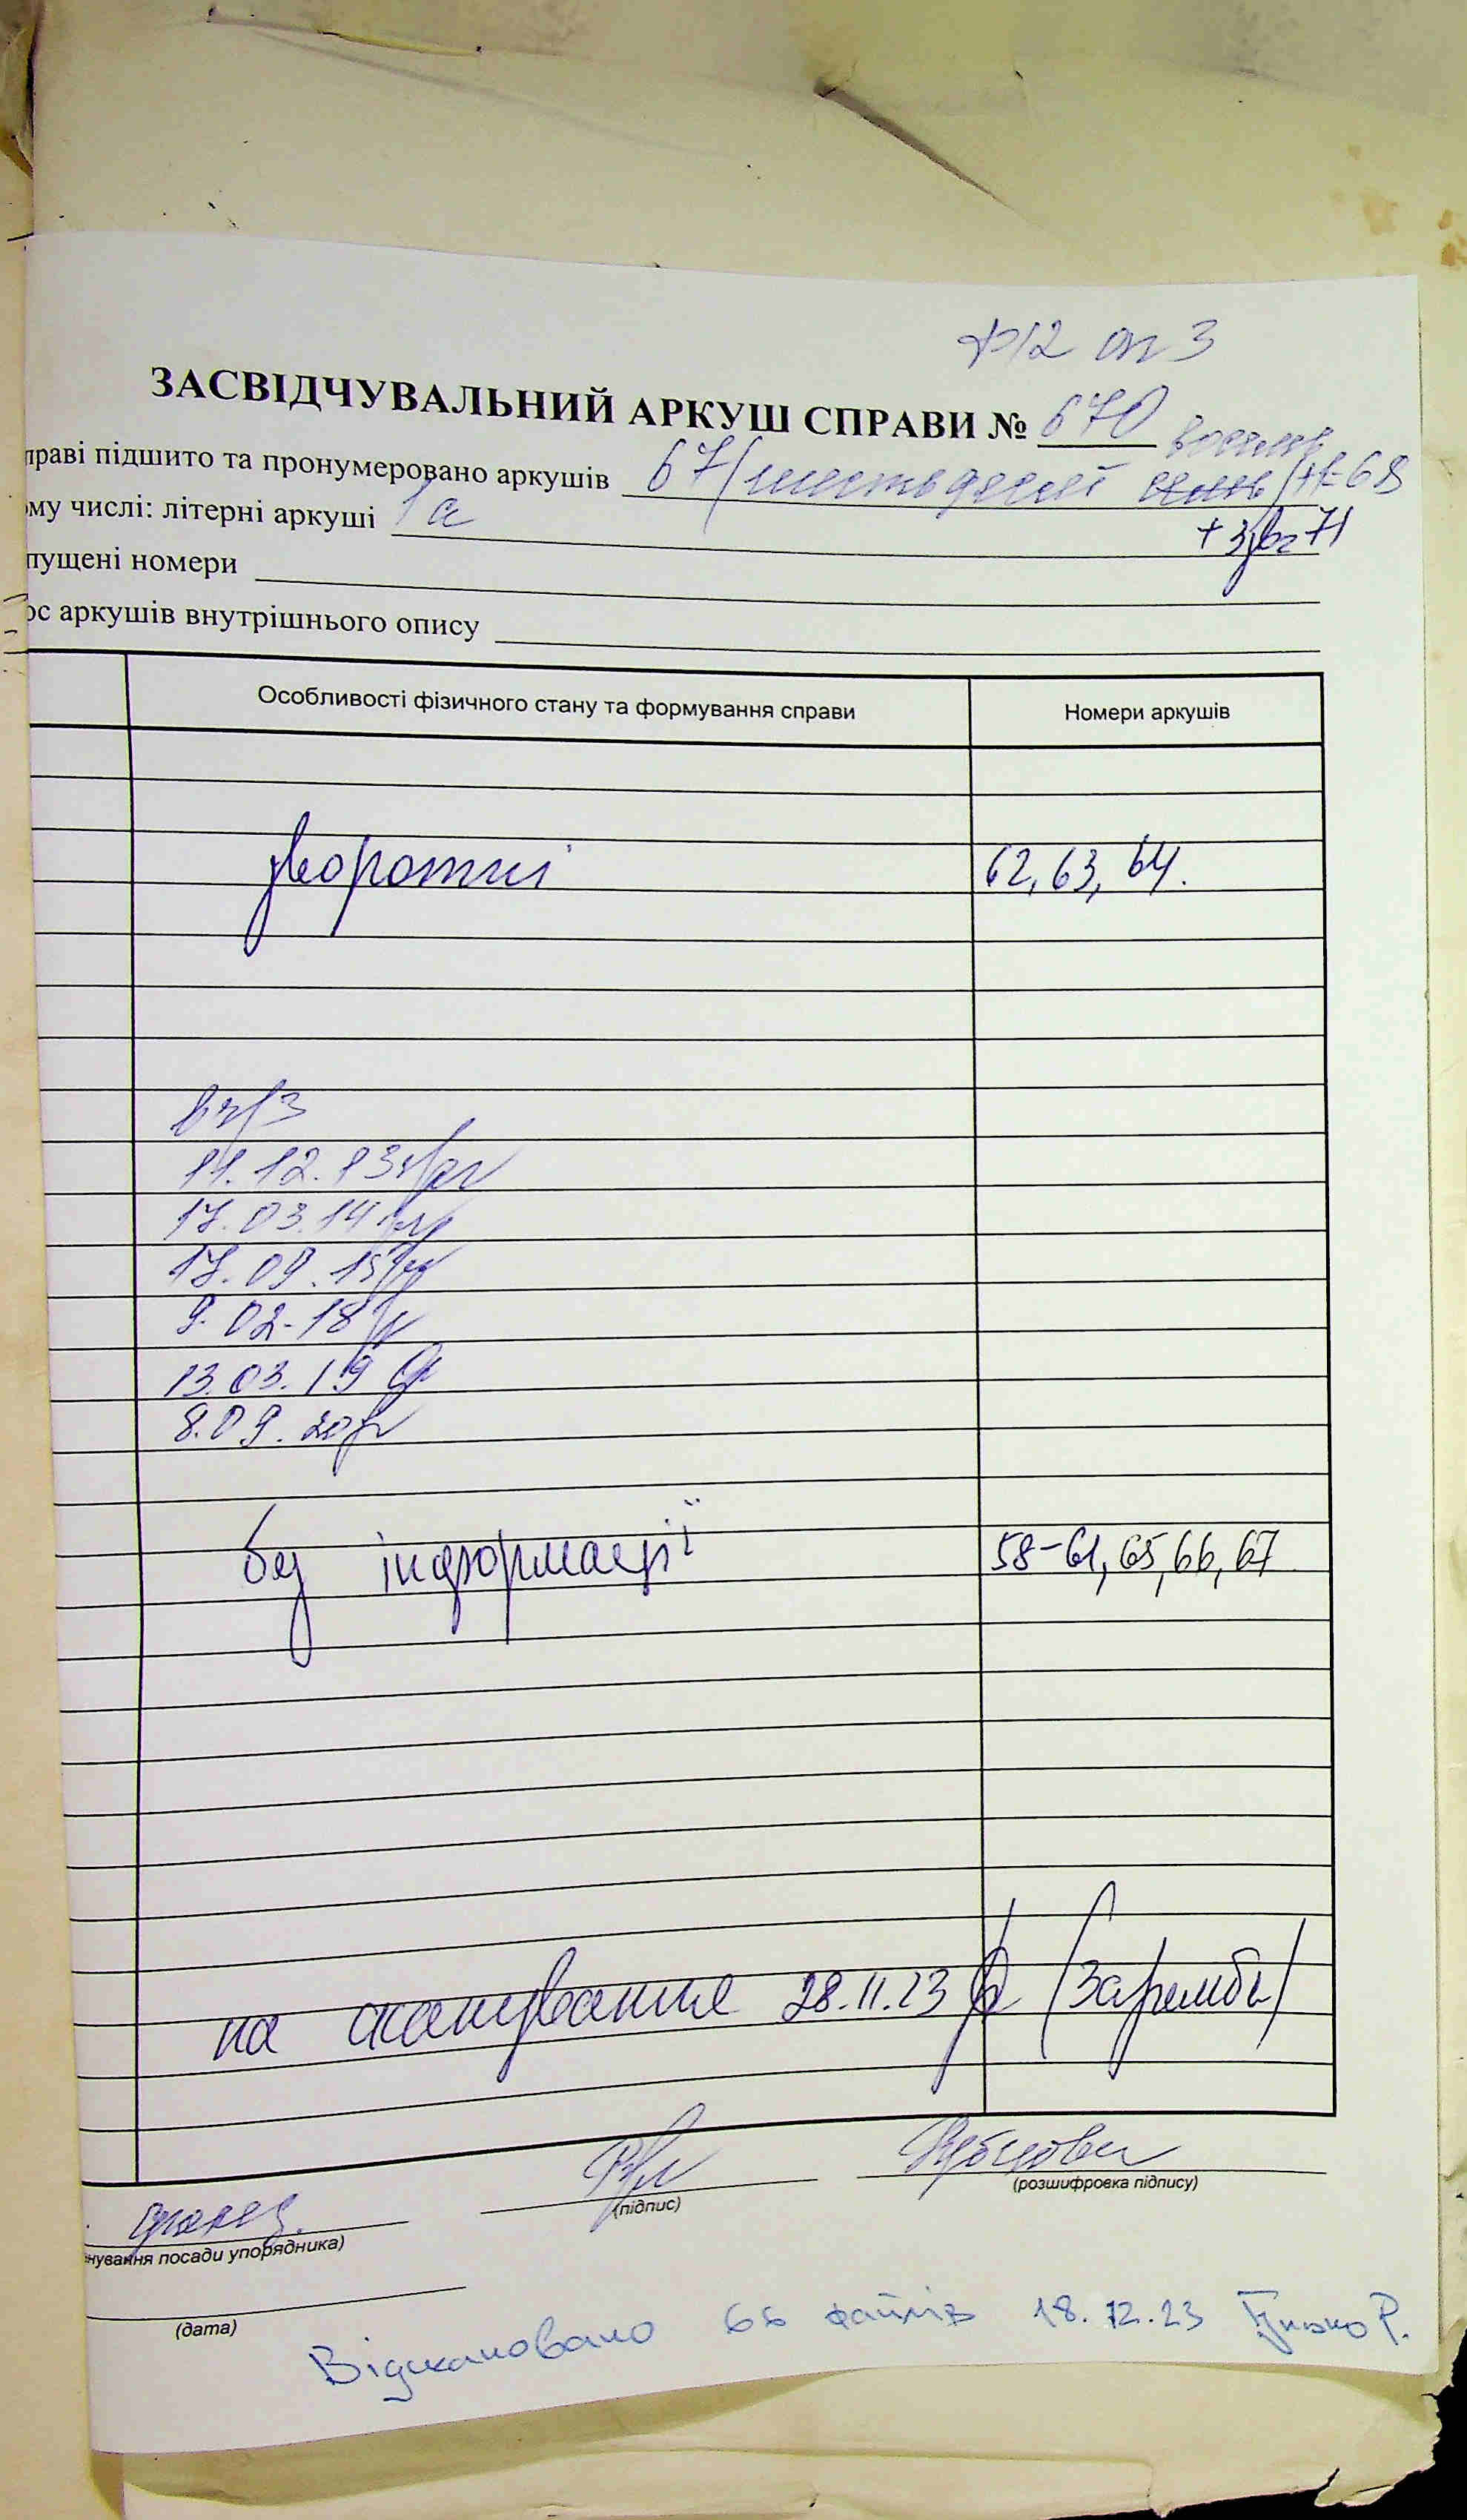 ф12 оп 3
ЗАСВІДЧУВАЛЬНИЙ АРКУШ СПРАВИ № 670
восемь
праві підшито та пронумеровано аркушів 67/шестьдесят семь/+1=68
ому числі: літерні аркуші 1а
+ 3зв=71
пущені номери
юс аркушів внутрішнього опису
Особливості фізичного стану та формування справи Номери аркушів
зворотні 62, 63, 64.
11.12.13
17.03.14
17.09.15
9.02-18
13.03.19
8.09.20
без інформації 58-61, 65, 66, 67
на сканування 28.11.23 (Заремба)
(підпис)
(розшифровка підпису)
нування посади упорядника)
(дата)
Відскановано 66 файлів 18.12.23 Р.